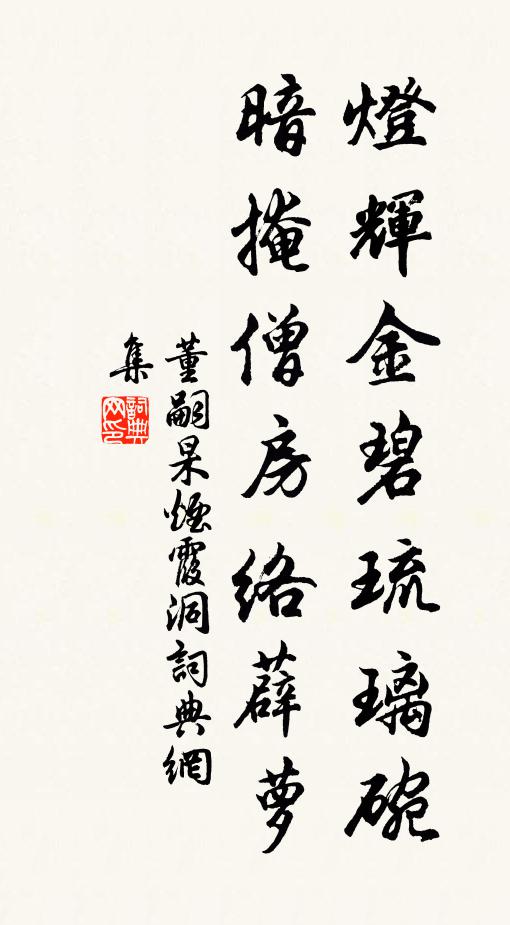 燈輝金碧琉璃碗
暗掩僧房絡薜萝
董嗣杲煙霞洞詞典網
集
詞典网印